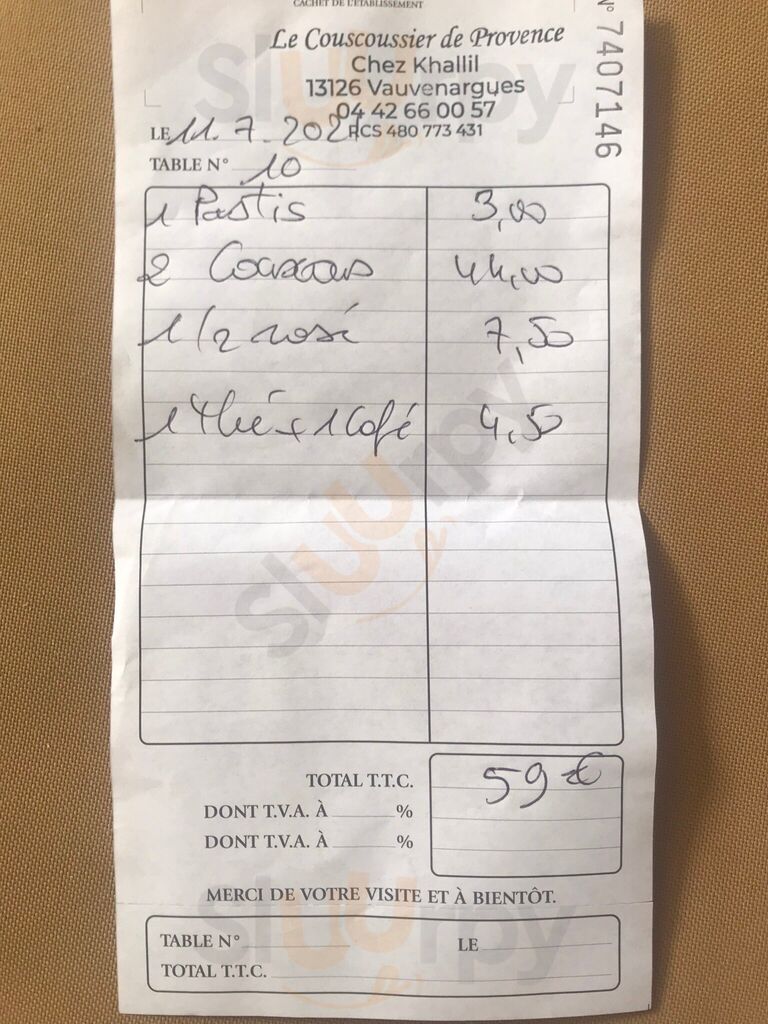 CACHET DE L'ETABLISSEMENT
Le Couscoussier de Provence
Chez Khallil
13126 Vauvenargues
04 42 66 00 57
RCS 480 773 431
N° 7407146
LE 11.7.2021
TABLE N° 10
1 Pastis 3,00
2 Couscous 44,00
1/2 rosé 7,50
1 thé + 1 Café 4,50
TOTAL T.T.C. 59 €
DONT T.V.A. À %
DONT T.V.A. À %
MERCI DE VOTRE VISITE ET À BIENTÔT.
TABLE N° LE
TOTAL T.T.C.
Sluurpy
Sluurpy
Sluurpy